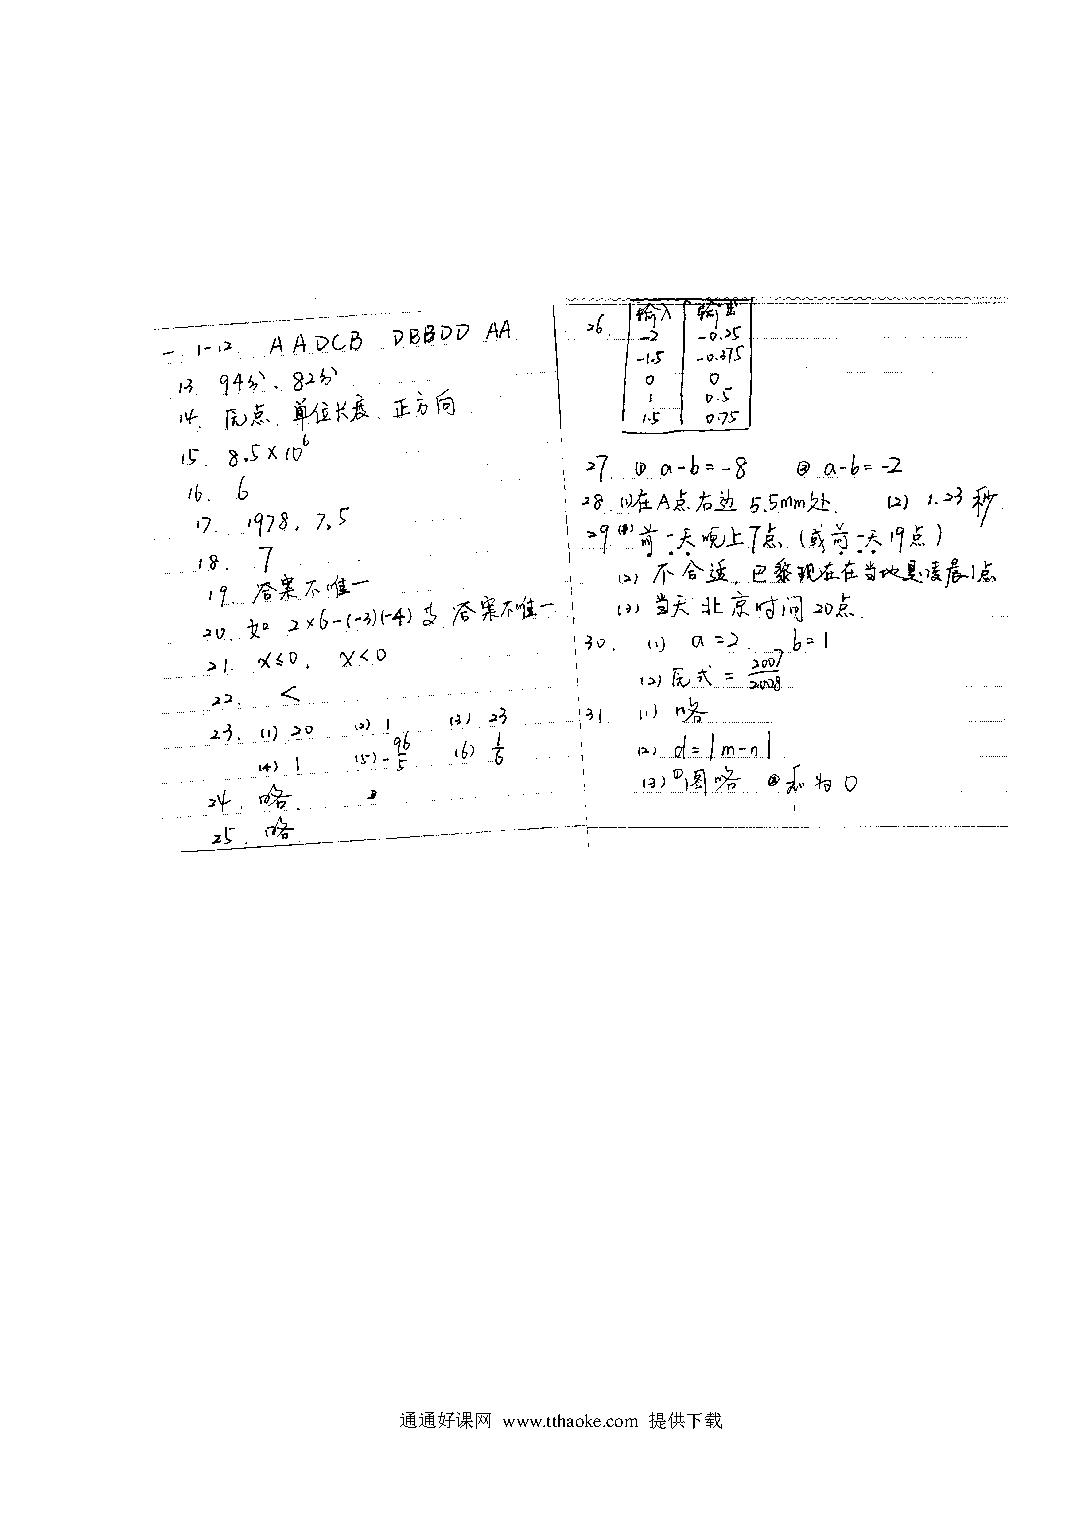 一. 1-12 AADCB DBBDD AA
13. 94分、82分
14. 原点、单位长度、正方向
15. 8.5×10⁶
16. 6
17. 1978, 7.5
18. 7
19. 答案不唯一
20. 如 2×6-(-3)(-4) 答案不唯一
21. x≤0, x<0
22. <
23. (1) 20 (2) 1 (3) 23
(4) 1 (5) -96/5 (6) 1/6
24. 略
25. 略
26. 输入 输出
-2 -0.25
-1.5 -0.375
0 0
1 0.5
1.5 0.75
27. ① a-b=-8 ② a-b=-2
28. (1)在A点右边 5.5mm处. (2) 1.23秒
29 (1) 前一天晚上7点 (或前一天19点)
(2) 不合适, 巴黎现在在当地是凌晨1点
(3) 当天北京时间20点
30. (1) a=2 b=1
(2) 原式 = 2007/2008
31 (1) 略
(2) d=|m-n|
(3) ①图略 ②和为0
通通好课网 www.tthaoke.com 提供下载